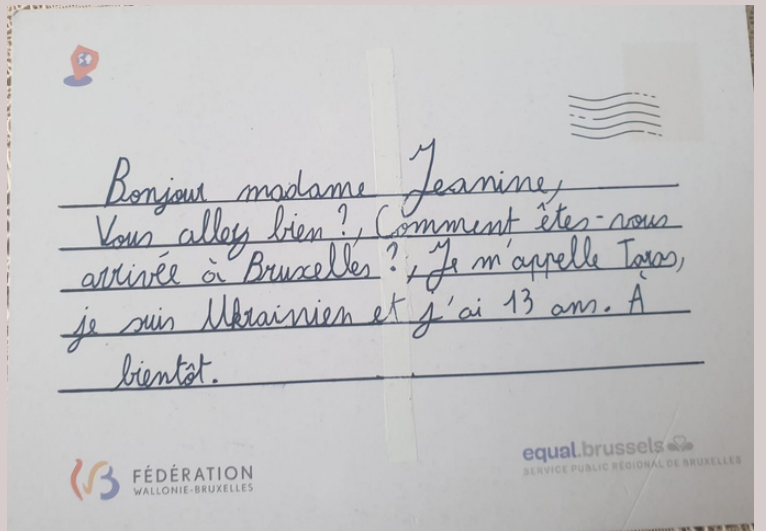 Bonjour madame Jeanine,
Vous allez bien ?, Comment êtes-vous
arrivée à Bruxelles ?, Je m'appelle Taras,
je suis Ukrainien et j'ai 13 ans. À
bientôt.
FÉDÉRATION
WALLONIE-BRUXELLES
equal.brussels
SERVICE PUBLIC RÉGIONAL DE BRUXELLES